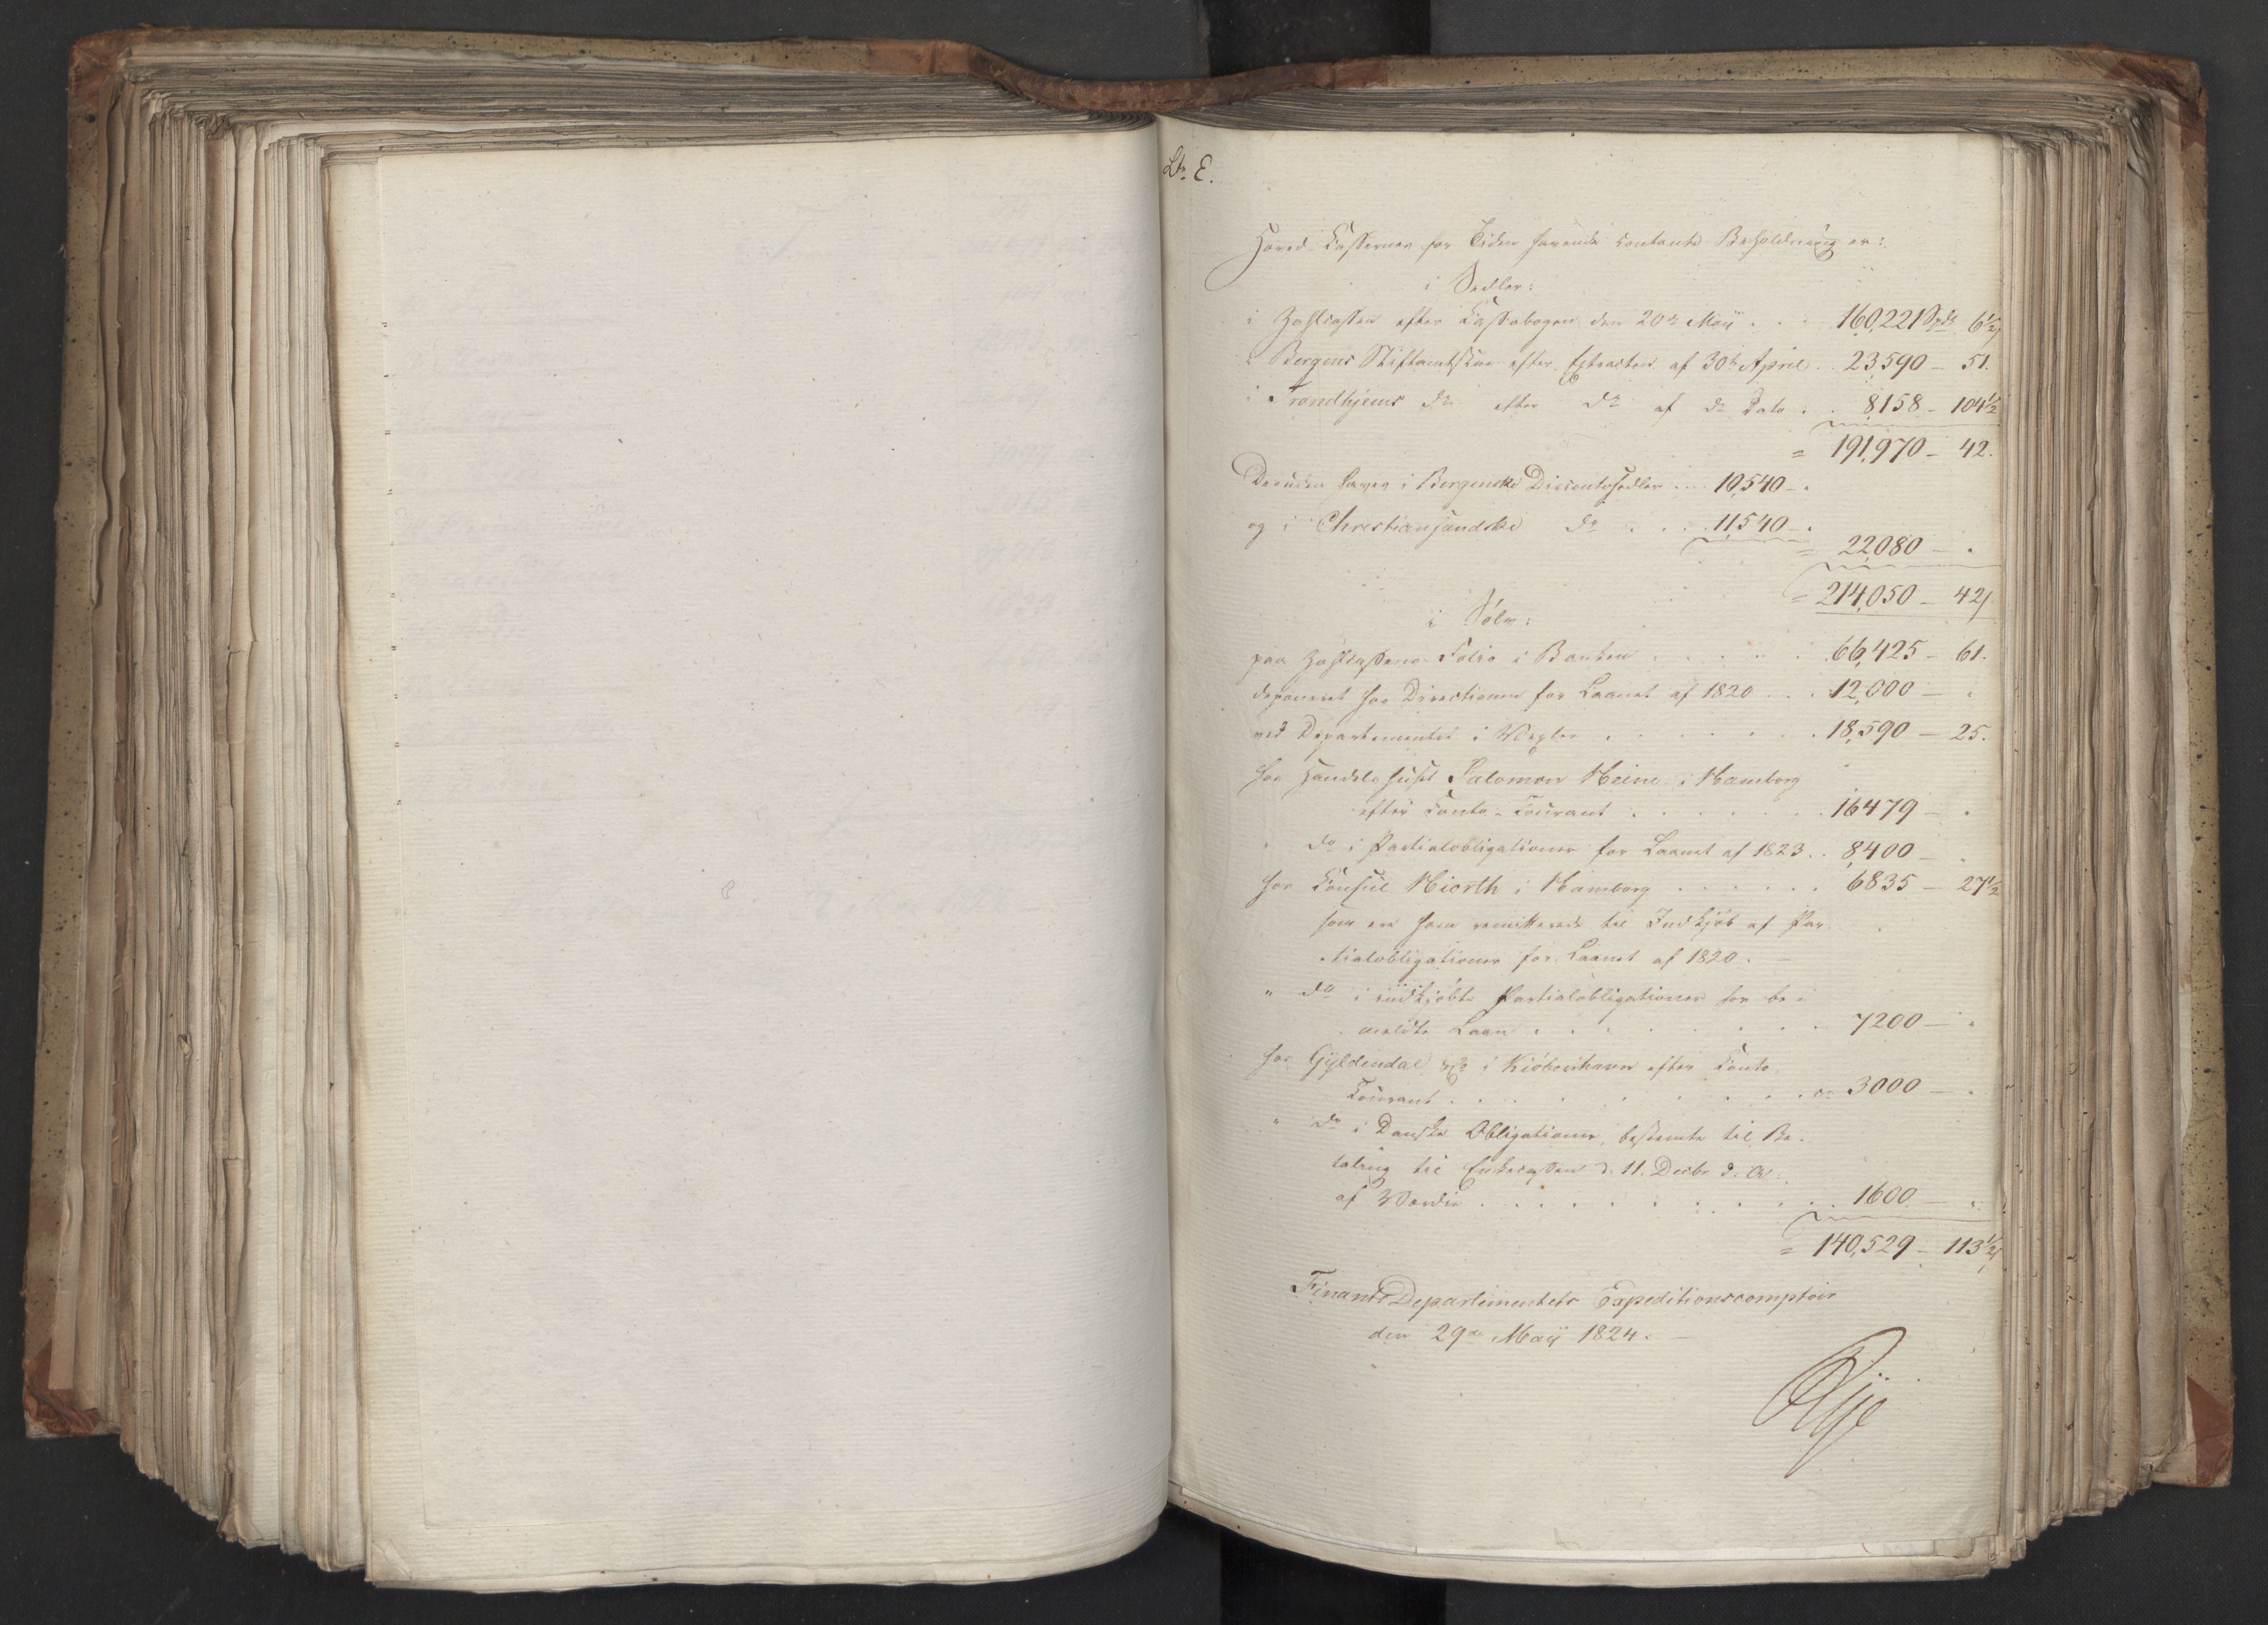 Ltr. E.
Hoved-Cassernes for Tiden havende contante Beholdning er:
i Sedler:
i Zahlcassen efter Cassabogen den 20de Maij . . . 160,221 Spd. 6½
i Bergens Stiftamtstue efter Extracten af 30te April . . 23,590 - 51.
i Trondhjems do efter do af do Dato . . 8,158 - 104½
= 191,970 - 42.
Desuden haves i Bergenske Discontosedler . . . 10,540 - .
og i Christiansandske do . . . 11,540 - .
= 22,080 - .
= 214,050 - 42
i Sølv:
paa Zahlcassens Folio i Banken . . . . . 66,425 - 61.
deponeret hos Directionen for Laanet af 1820 . . . 12,000 - .
ved Departementet i Vexler . . . . . . . 18,590 - 25.
hos Handelshuset Salomon Heine i Hamborg
efter Conto-Courant . . . . . . 16479 - .
" do i Partialobligationer for Laanet af 1823 . . 8,400 - .
hos Consul Hiorth i Hamborg . . . . . . 6835 - 27½
som ere ham remitterede til Indkjøb af Par-
tialobligationer for Laanet af 1820. -
" do i indkjøbte Partialobligationer for be-
meldte Laan . . . . . . . . 7200 - "
hos Gyldendal & Co i Kiöbenhavn efter Conto
Courant . . . . . . . . . ca 3000 - .
" do i Danske Obligationer, bestemte til Be-
taling til Enkecassen d. 11. Decbr d. A.
af Værdie . . . . . . . . . 1600 - "
= 140,529 - 113½
Finants Departementets Expeditionscomptoir
den 29de Maij 1824. -